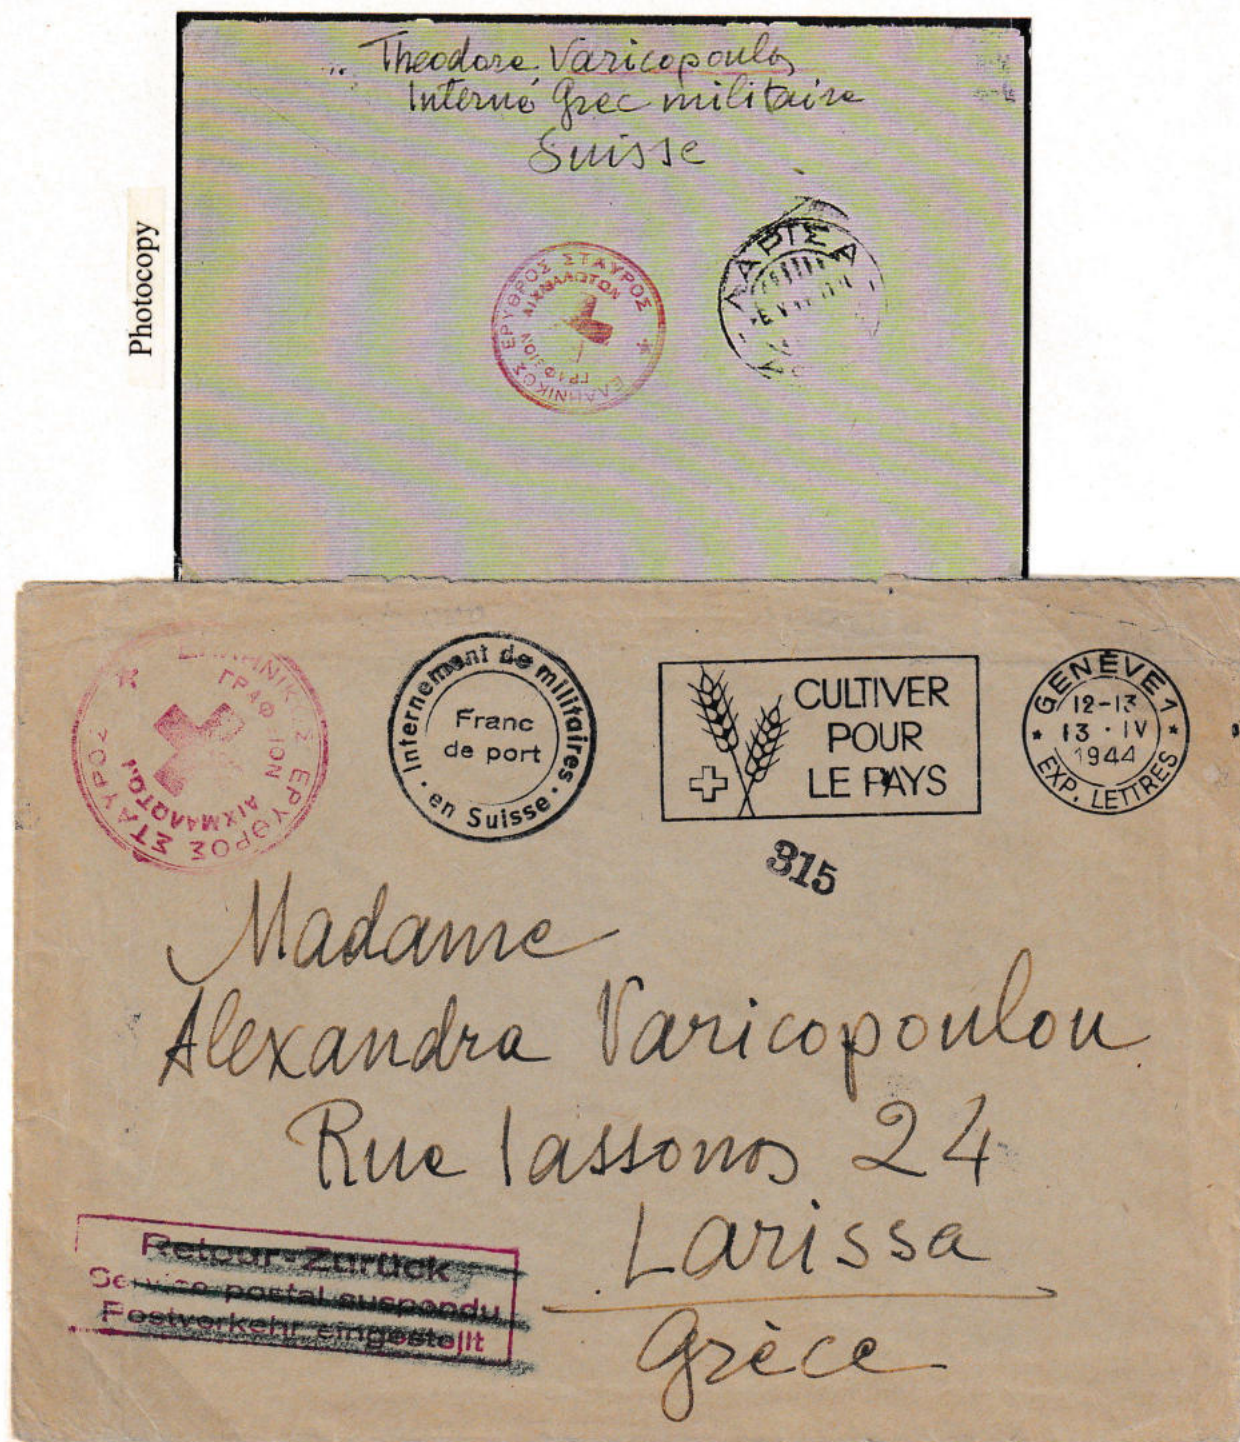 Theodore Varicopoulos
Interné Grec militaire
Suisse
Photocopy
ΕΛΛΗΝΙΚΟΣ ΕΡΥΘΡΟΣ ΣΤΑΥΡΟΣ
ΓΡΑΦΕΙΟΝ ΑΙΧΜΑΛΩΤΩΝ
ΛΑΡΙΣΑ
ΕΛΛΗΝΙΚΟΣ ΕΡΥΘΡΟΣ ΣΤΑΥΡΟΣ
ΓΡΑΦΕΙΟΝ ΑΙΧΜΑΛΩΤΩΝ
Internement de militaires
Franc
de port
en Suisse
CULTIVER
POUR
LE PAYS
GENÈVE 1
12-13
13·IV
1944
EXP. LETTRES
315
Madame
Alexandra Varicopoulou
Rue Iassonos 24
Larissa
Grèce
Retour-Zurück
Service postal suspendu
Postverkehr eingestellt